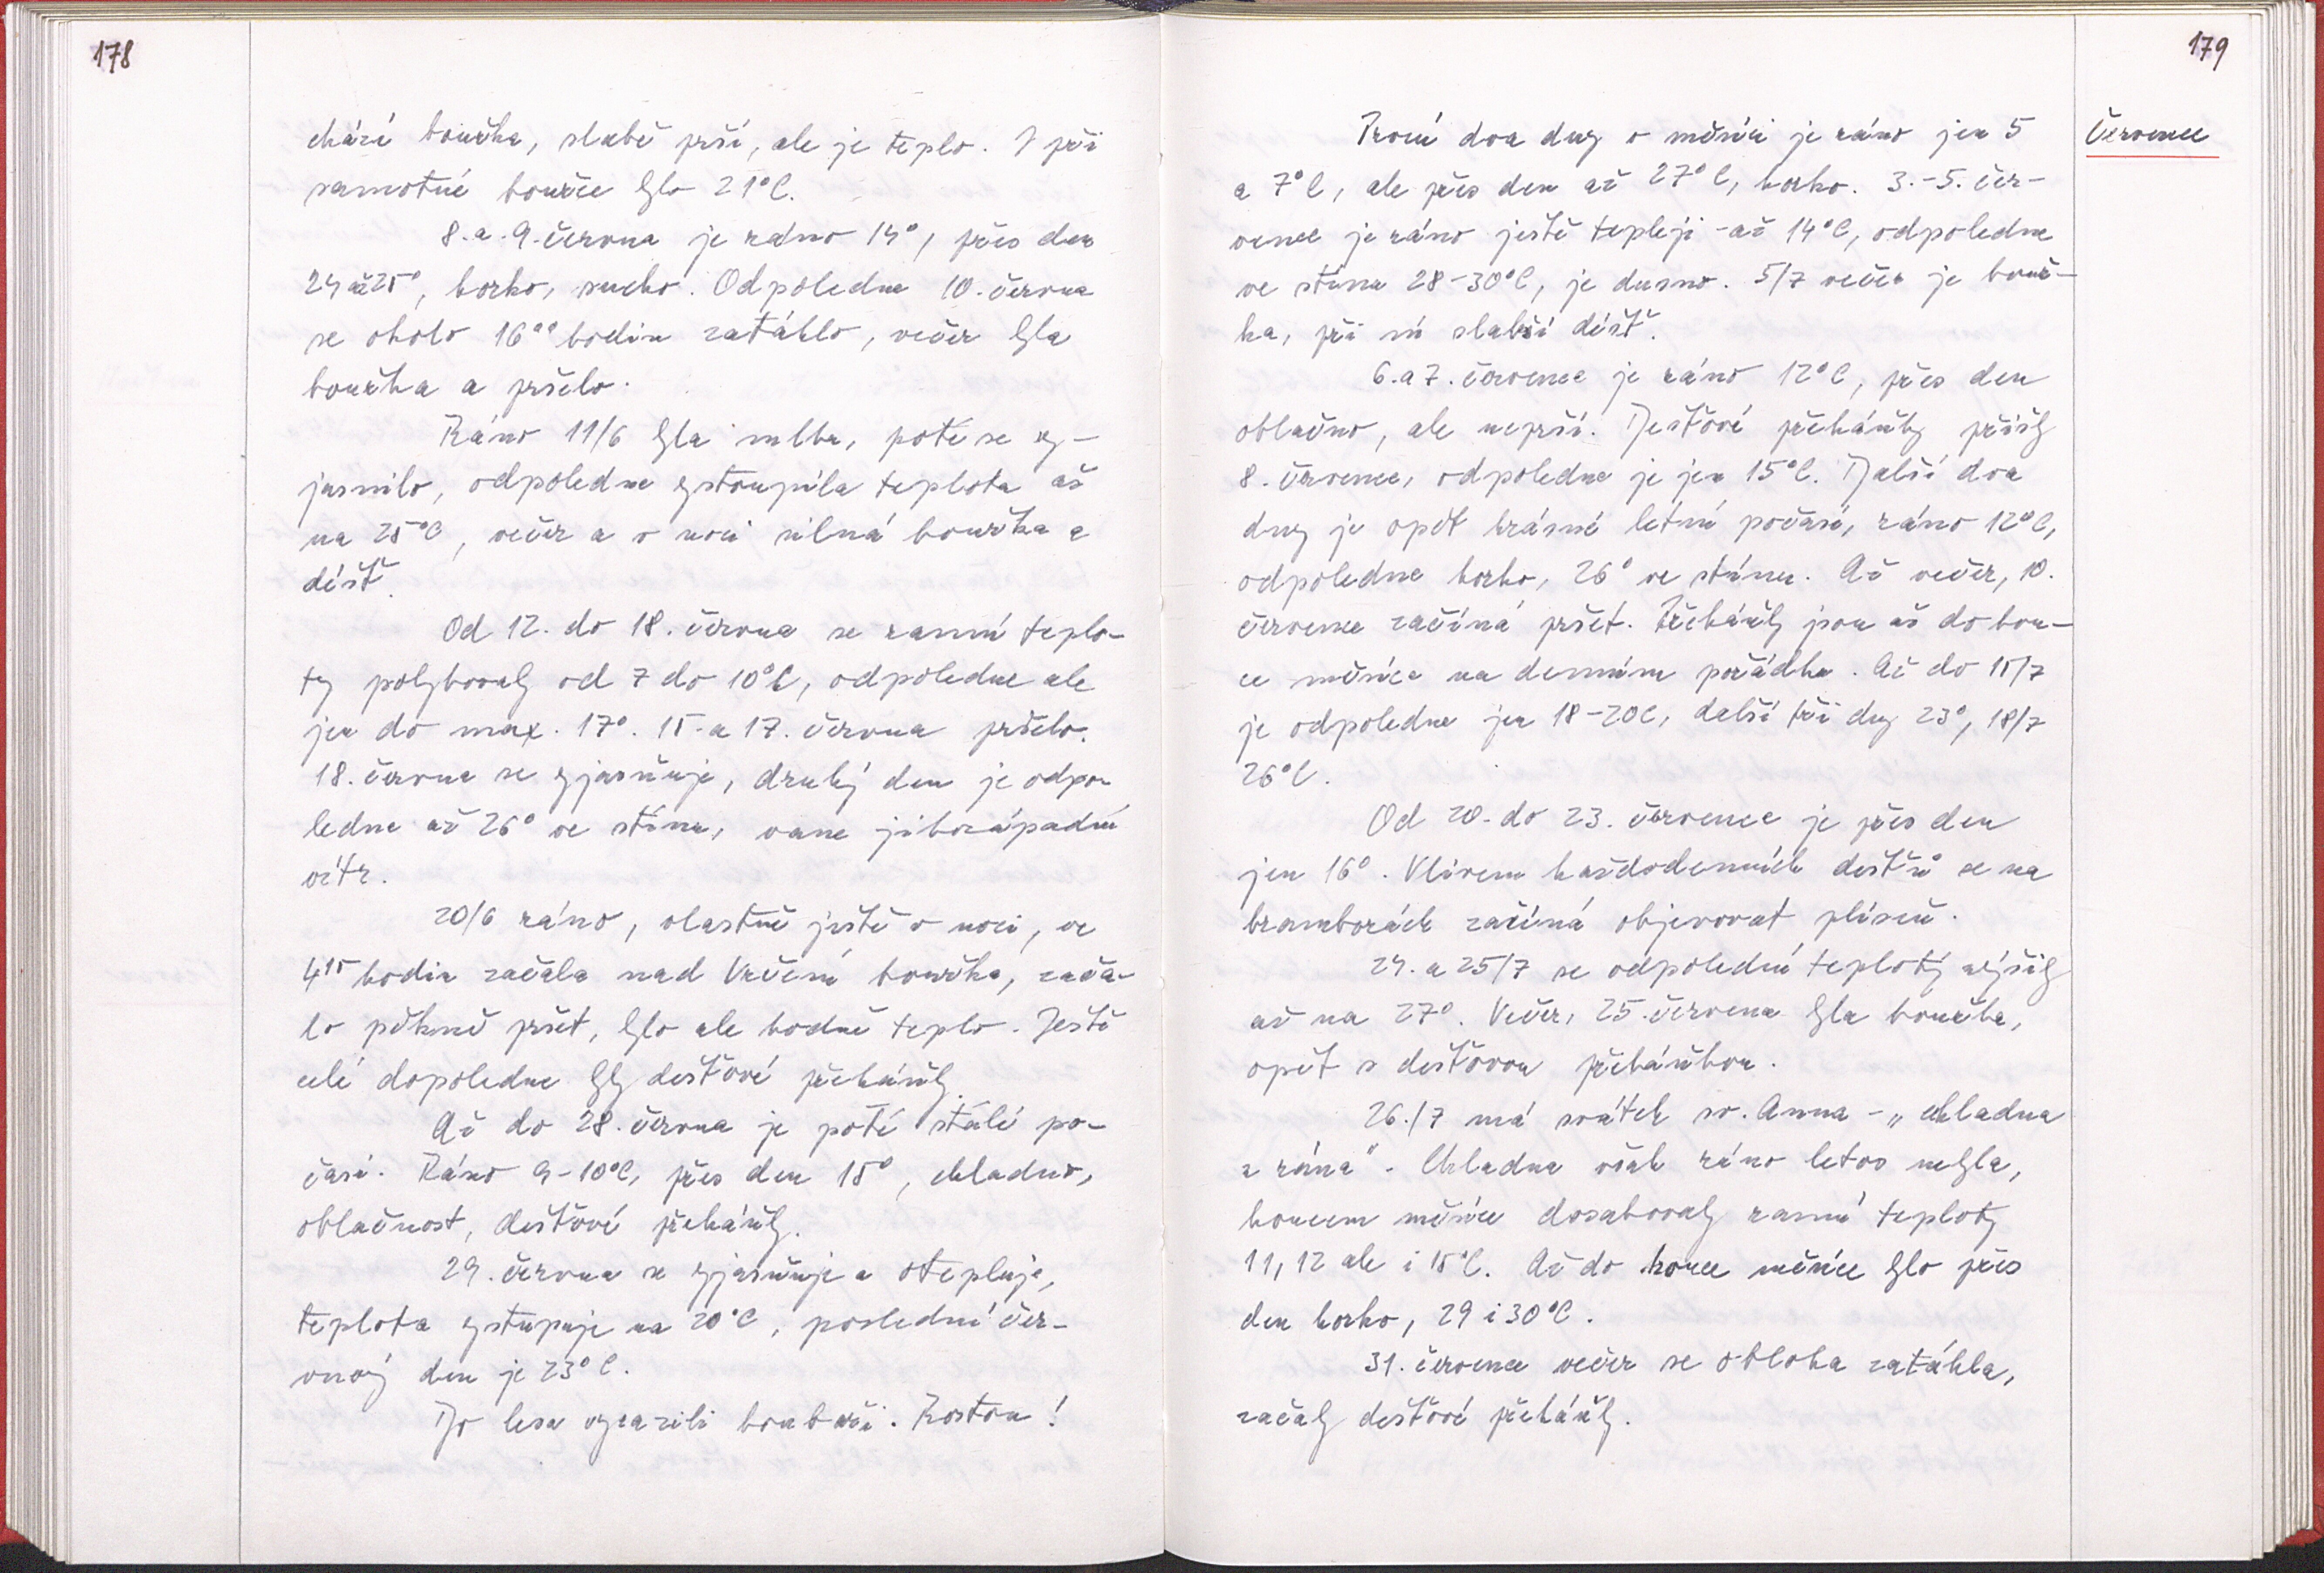 178
chází bouřka, slabě prší, ale je teplo. I při
samotné bouřce bylo 21°C.
8. a 9. června je ráno 14°, přes den
24 až 25°, horko, sucho. Odpoledne 10. června
se okolo 16°° hodin zatáhlo, večer byla
bouřka a pršelo.
Ráno 11/6 byla mlha, poté se vy-
jasnilo, odpoledne vystoupila teplota až
na 25°C, večer a v noci silná bouřka a
déšť.
Od 12. do 18. června se ranní teplo-
ty pohybovaly od 7 do 10°C, odpoledne ale
jen do max. 17°. 15. a 17. června pršelo.
18. června se vyjasňuje, druhý den je odpo-
ledne až 26° ve stínu, vane jihozápadní
vítr.
20/6 ráno, vlastně ještě v noci, ve
4¹⁵ hodin začala nad Vrčení bouřka, zača-
lo pěkně pršet, bylo ale hodně teplo. Ještě
celé dopoledne byly dešťové přeháňky.
Až do 28. června je poté stálé po-
časí. Ráno 9-10°C, přes den 15°, chladno,
oblačnost, dešťové přeháňky.
29. června se vyjasňuje a otepluje,
teplota vystupuje na 20°C, poslední čer-
vnový den je 23°C.
Do lesa vyrazili houbaři. Rostou!
179
Červenec
První dva dny v měsíci je ráno jen 5
a 7°C, ale přes den až 27°C, horko. 3.-5. čer-
vence je ráno ještě tepleji - až 14°C, odpoledne
ve stínu 28-30°C, je dusno. 5/7 večer je bouř-
ka, při ní slabší déšť.
6. a 7. července je ráno 12°C, přes den
oblačno, ale neprší. Dešťové přeháňky přišly
8. července, odpoledne je jen 15°C. Další dva
dny je opět krásné letní počasí, ráno 12°C,
odpoledne horko, 26° ve stínu. Až večer, 10.
července začíná pršet. Přeháňky jsou až do kon-
ce měsíce na denním pořádku. Až do 15/7
je odpoledne jen 18-20C, další tři dny 23°, 18/7
26°C.
Od 20. do 23. července je přes den
jen 16°. Vlivem každodenních dešťů se na
bramborách začíná objevovat plíseň.
24. a 25/7 se odpolední teploty zvýšily
až na 27°. Večer, 25. července byla bouřka,
opět s dešťovou přeháňkou.
26./7 má svátek sv. Anna - „chladna
z rána". Chladna však ráno letos nebyla,
koncem měsíce dosahovaly ranní teploty
11, 12 ale i 15°C. Až do konce měsíce bylo přes
den horko, 29 i 30°C.
31. července večer se obloha zatáhla,
začaly dešťové přeháňky.